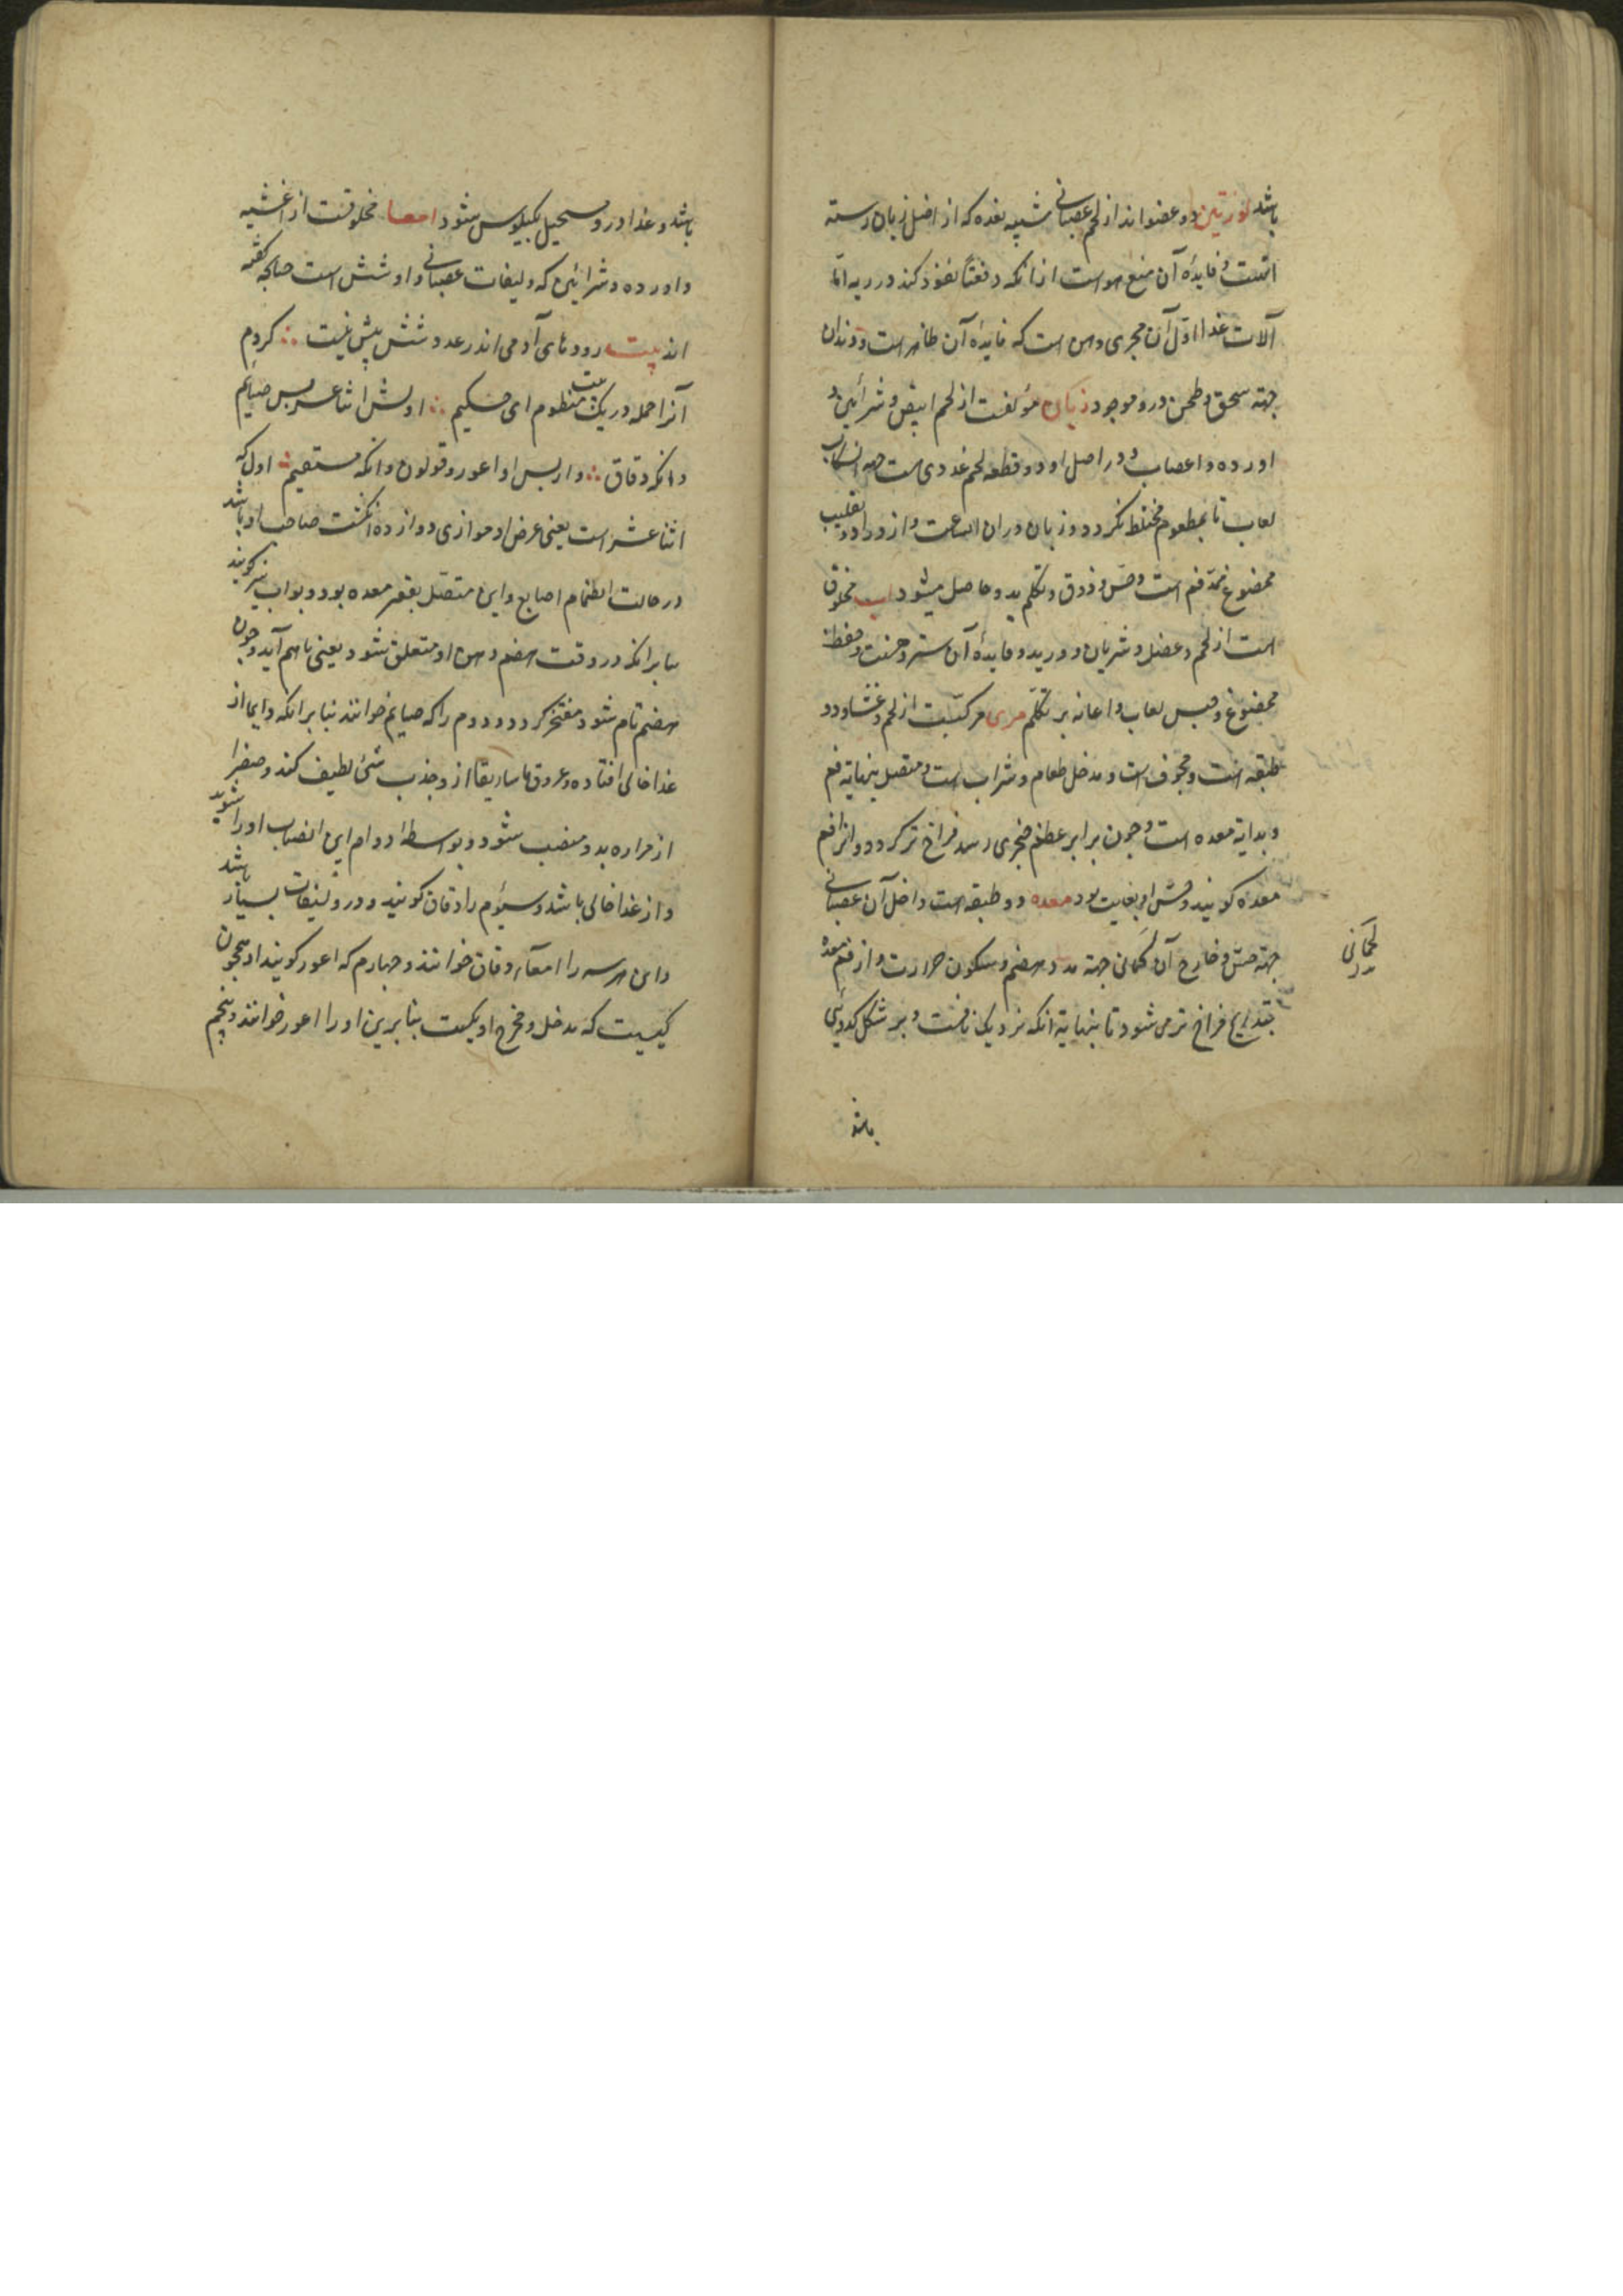 باشد لوزتین دو عضو اند از لحم عصبانی شبیه بغده که از اصل زبان رسته
است و فایدهٔ آن منع هواست از انکه دفعتاً نفوذ کند در ریه اما
آلات غذا اول آن مجری دهن است که فایدهٔ آن ظاهر است و دندان
جهة سحق و طحن درو موجود زبان مؤلفست از لحم ابیض و شرائین و
اورده و اعصاب و در اصل او دو قطعه لحم غددی است جهة انسکاب
لعاب تا بمطعوم مختلط کردد و زبان دران الت و ازدراد و تقلیب
ممضوغ فم است و حس و ذوق و تکلم بدو حاصل میشود لب مخلوق
است از لحم و عضل و شریان و ورید و فایدهٔ آن ستر و حسنت و حفظ
ممضوغ و حبس لعاب و اعانه بر تکلم مری مرکبست از لحم و غشا و دو
طبقه است و مجوف است و مدخل طعام و شراب است و متصل بنهایة فم
و بدایة معده است و چون برابر عظم خنجری رسد فراخ تر کردد و انرا فم
معده کویند و حس او بغایت بود معده دو طبقه است داخل آن عصبانی
جهة حس و خارج آن لحمانی جهة مدد هضم و سکون حرارت و از فم معده
بتدریج فراخ تر می شود تا بنهایة انکه نزدیک نافست و بر شکل کدوئی
لحمانی
باشد
باشد و غذا درو مستحیل بکیلوس شود امعا مخلوقست از اغشیه
و اورده و شرائین که و لیفات عصبانی و او شش است چنانچه گفته
اند بیت رودهای آدمی اندر عدد شش بیش نیست کردم
آنرا جمله در یک بیت منظوم ای حکیم اولش اثنا عشر پس صایم
وانکه دقاق واز پس او اعور و قولون وانکه مستقیم اول که
اثنا عشر است یعنی عرض او موازی دوازده انکشت صاحب او باشد
در حالت انضمام اصابع و این متصل بقعر معده بود و بواب نیز کویند
بنابرانکه در وقت هضم دهن او متعلق شود یعنی باهم آید و چون
هضم تام شود مفتح کردد و دوم را که صایم خوانند بنابرانکه دایما از
غذا خالی افتاده و عروق ماساریقا ازو جذب شئ لطیف کند و صفرا
از مراره بدو منصب شود و بواسطهٔ دوام این انصباب او را شوید
و از غذا خالی باشد و سیوم را دقاق کویند و درو لیفات بسیار باشد
و این هرسه را امعاء دقاق خوانند و چهارم که اعور کویند او همچون
کیسیست که مدخل و مخرج او یکیست بنابرین او را اعور خوانند و پنجم